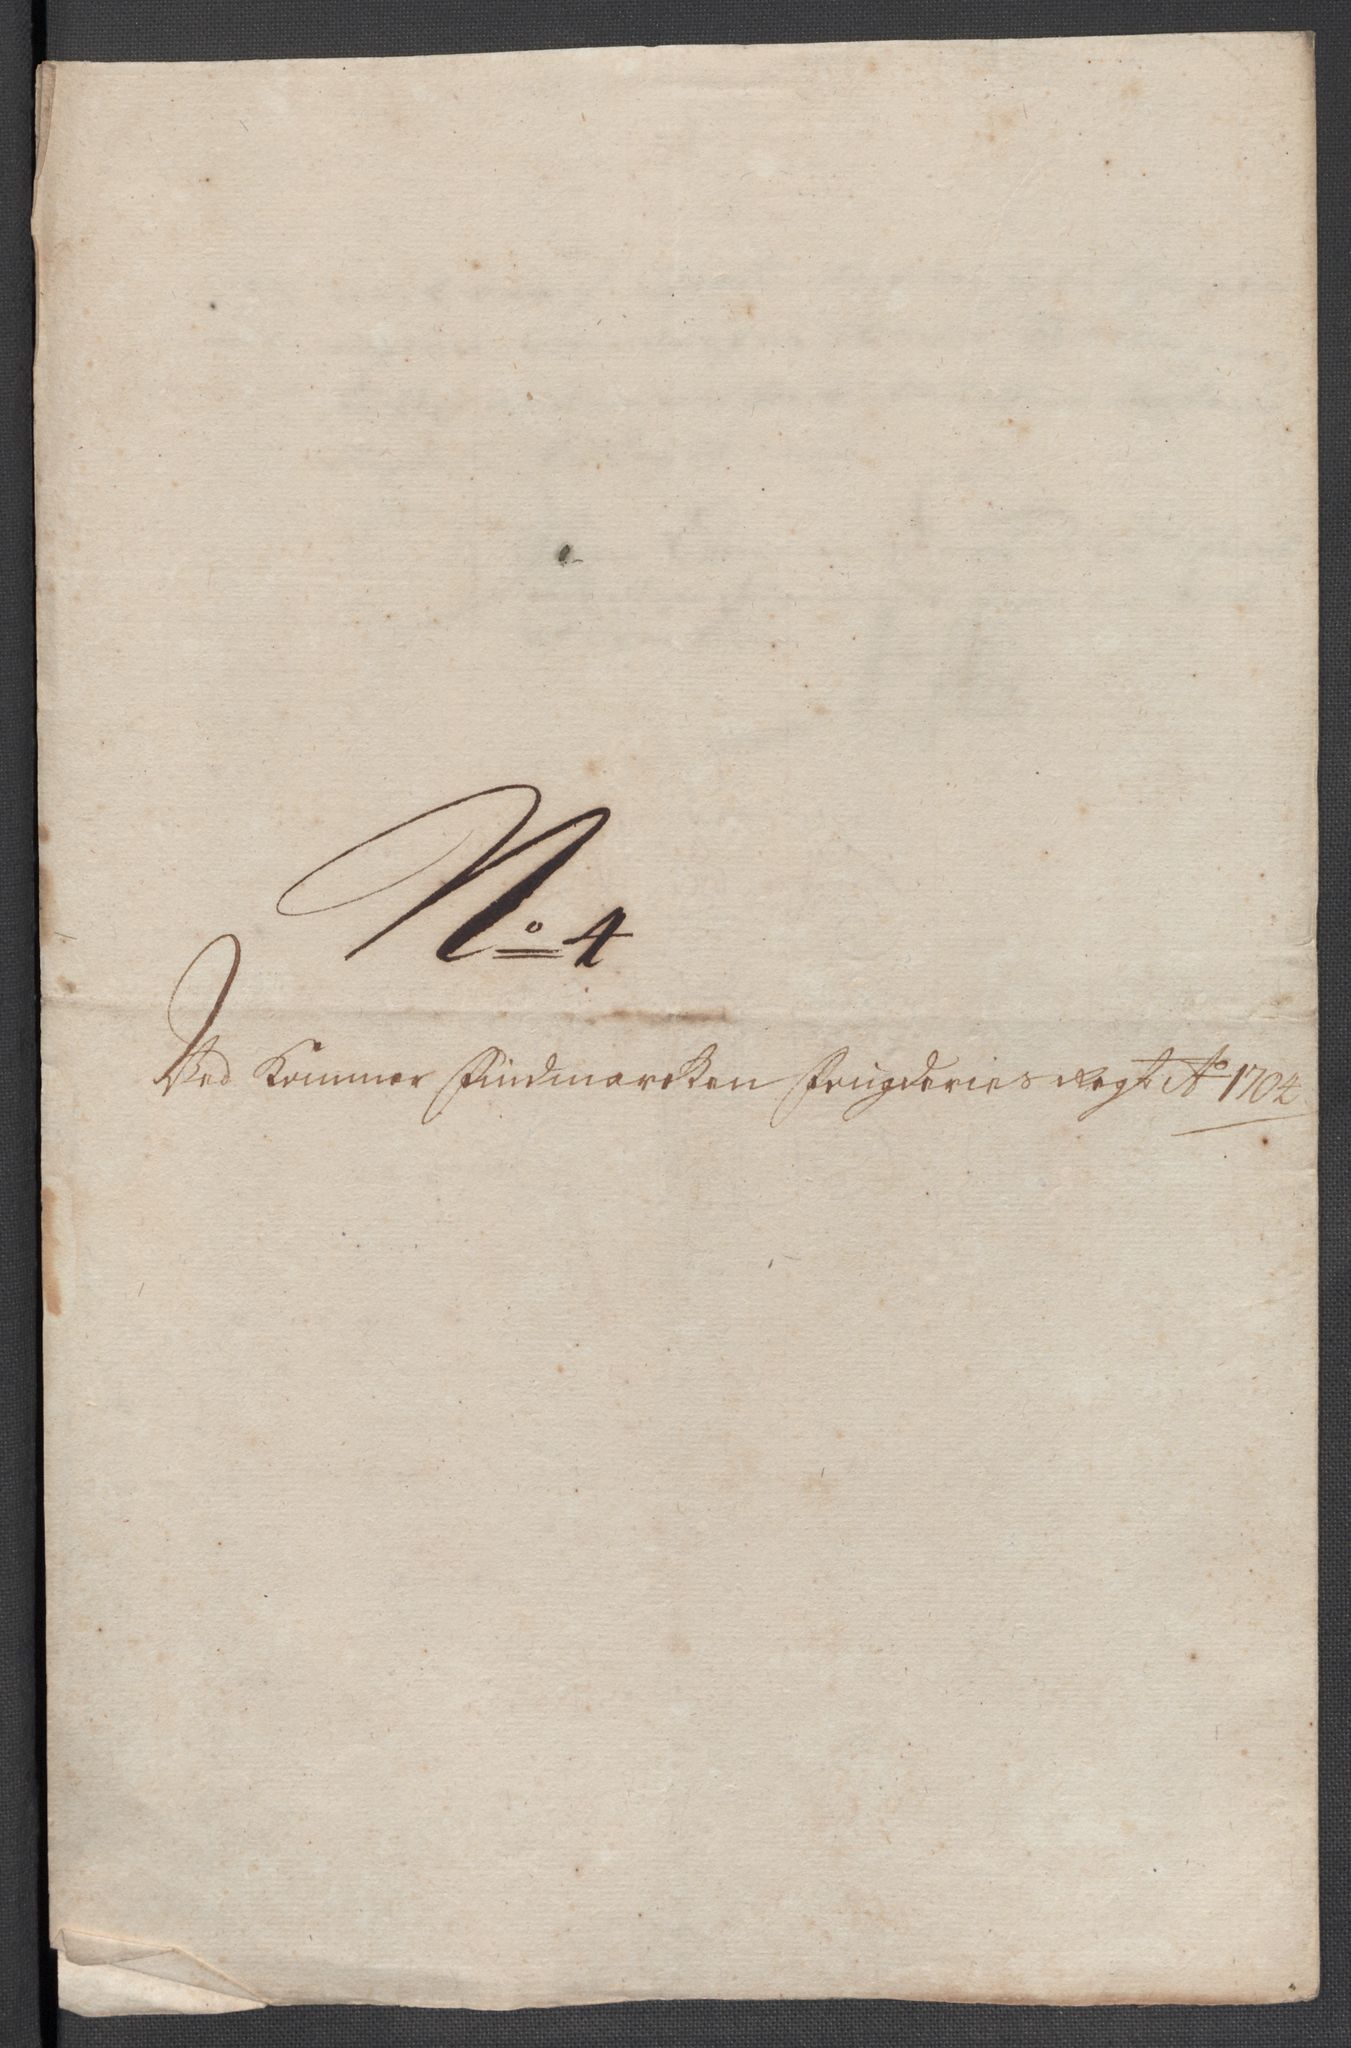 No 4
Ved Kommer Findmarcken fougderies Regt Ao 1704